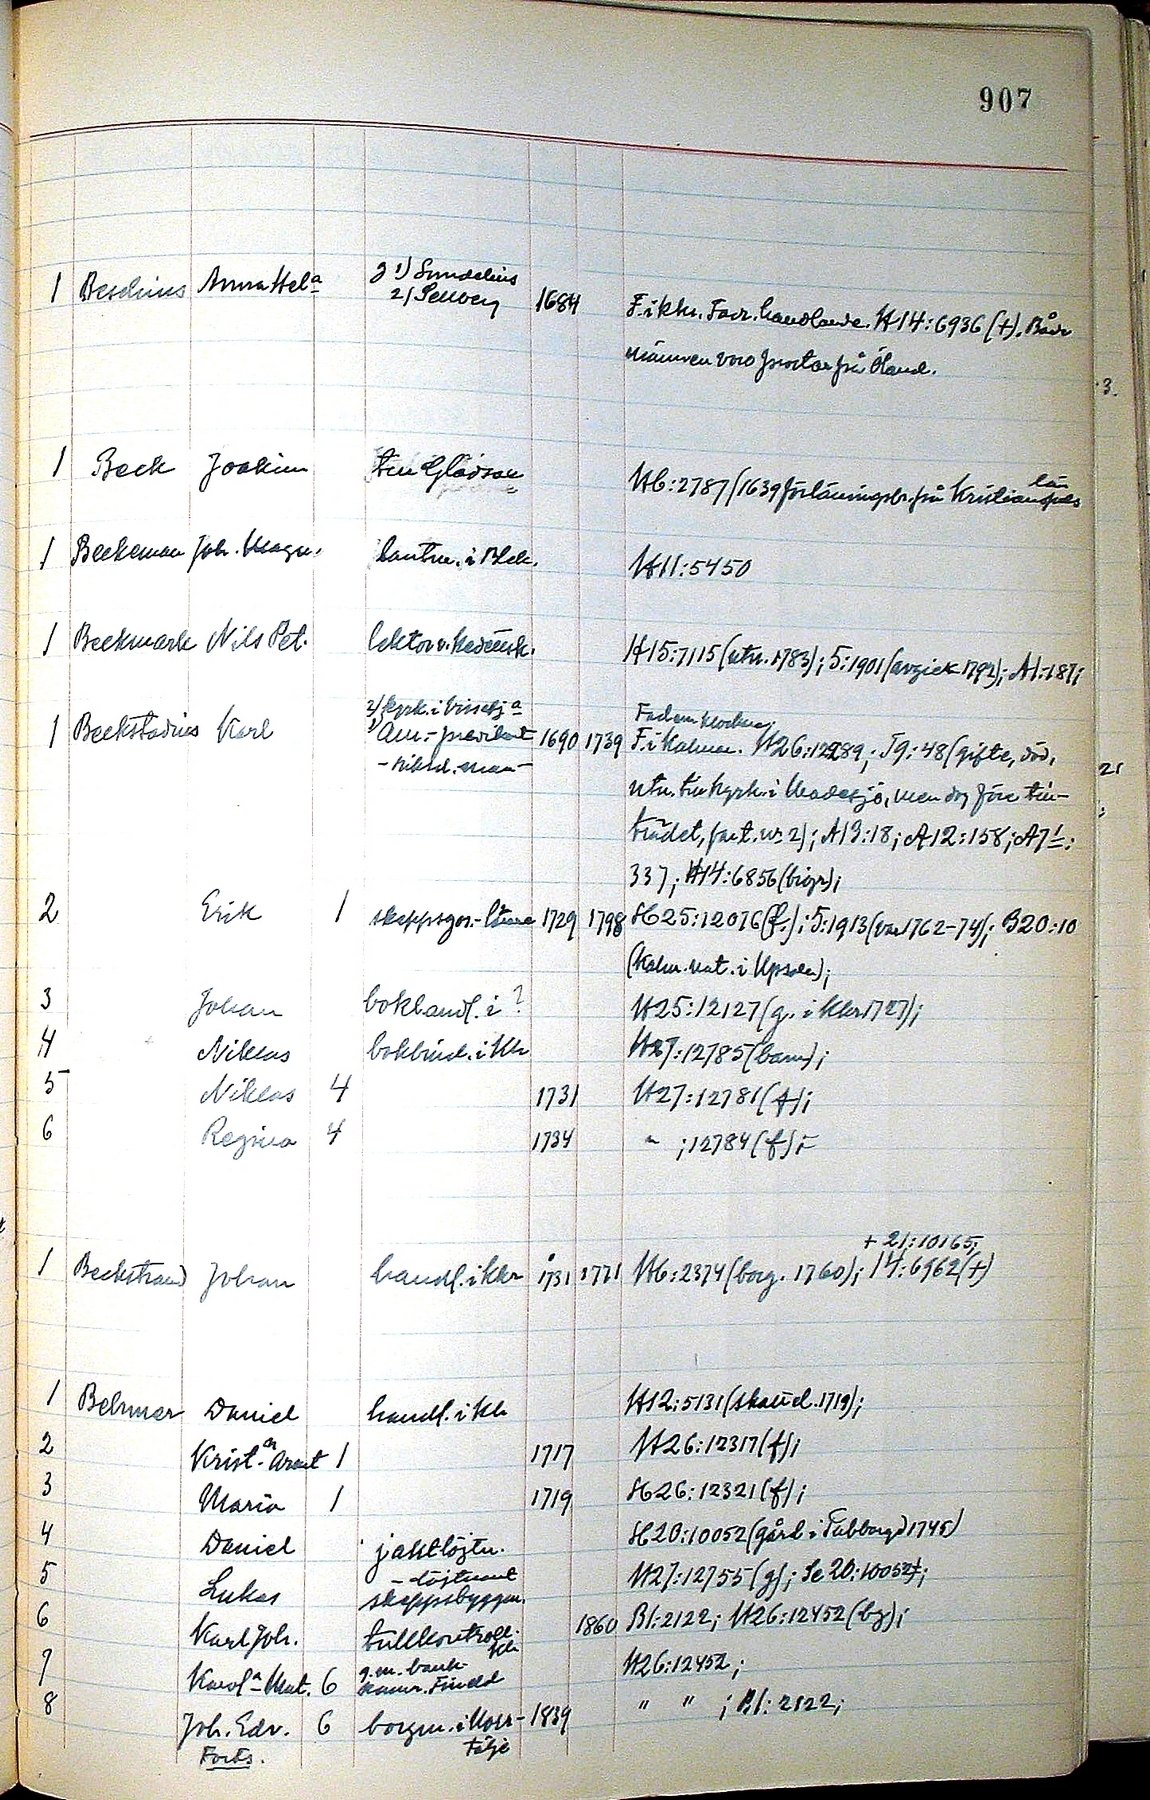 907
1 Beselius Anna Hel:a g 1) Sundelius
2) Sellberg 1684 F. i khr. Fadr. handlande. H14:6936 (+). Båda
männen voro prostar på Öland.
1 Beck Joakim till Glädsax H6:2787 (1639 förläningsbr. på Kristianopels
län
1 Beckeman Joh. Magn. lantm. i Blek. H11:5450
1 Beckmark Nils Pet. lektor v. H15:7115 (utn. 1783); 5:1901 (avgick 1792); A1:187;
1 Beckstadius Karl 2) kyrk. i
1) Am.-predikant
-riksd. man- 1690 1739 Fadern klockare,
F. i Kalmar. H26:12289; T9:48 (gifte, död,
utn. till kyrk. i Madesjö, men dog före till-
trädet, past. nr 2); A13:18; A12:158; A7:1:
337; H14:6856 (biogr);
2 Erik 1 skeppsgos.-läkare 1729 1798 H25:12076 (f.); 5:1913 (var 1762-74); B20:10
(Kalm. nat. i Upsala);
3 Johan bokhandl. i ? H25:12127 (g. i Khr 1727);
4 Niklas bokbind. i Khr H27:12785 (barn);
5 Niklas 4 1731 H27:12781 (f);
6 Regina 4 1734 " ; 12784 (f);
+ 21:10165;
1 Beckstrand Johan handl. i Khr 1731 1771 H6:2374 (borg. 1760); 14:6962 (+)
1 Behmer Daniel handl. i Khr H12:5131 (skattd. 1719);
2 Krist:an Arent 1 1717 H26:12317 (f);
3 Maria 1 1719 H26:12321 (f);
4 Daniel jaktlöjtn. H20:10052 (gård i 1745)
5 Lukas -löjtnant
skeppsbyggm. H27:12755 (g); Se 20:10052;
6 Karl Joh. tullkontroll.
Khr 1860 B1:2122; H26:12452 (bg);
7 Karol:a Mat. 6 g.m. bank-
kamr. H26:12452;
8 Joh. Edv. 6 borgm. i Norr-
tälje 1839 " " ; B1:2122;
Forts.